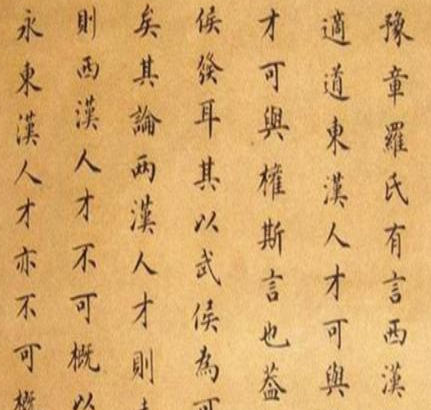 豫章羅氏有言西漢
適道東漢人才可與
才可與權斯言也葢
侯發耳其以武侯為可
矣其論兩漢人才則
則西漢人才不可概以
永東漢人才亦不可概